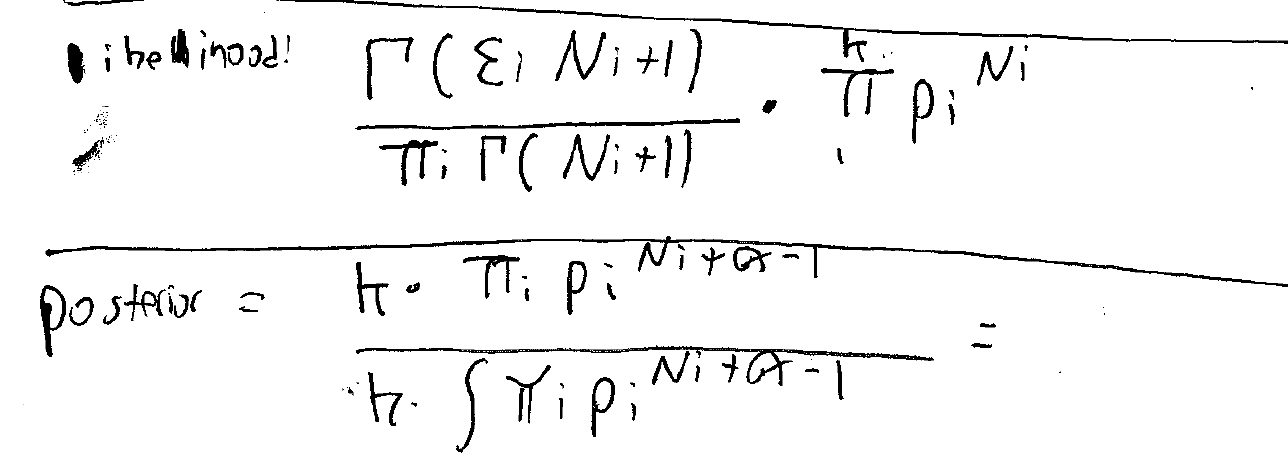 likelihood: Γ(Σi Ni+1) / πi Γ(Ni+1) · k π i pi^Ni
posterior = k · πi pi^(Ni+α-1) / k · ∫ πi pi^(Ni+α-1) =